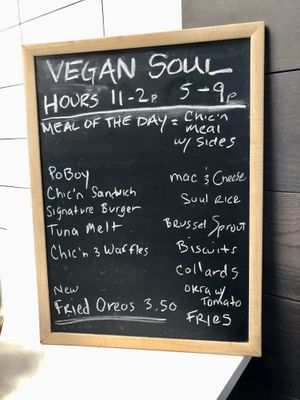 VEGAN SOUL
HOURS 11-2P 5-9P
MEAL OF THE DAY = Chic'n
meal
w/ Sides
PoBoy
Chic'n Sandwich
Signature Burger
Tuna Melt
Chic'n & Waffles
New
Fried Oreos 3.50
mac & Cheese
Soul Rice
Brussel Sprout
Biscuits
Collards
OKRA w/
Tomato
FRIES